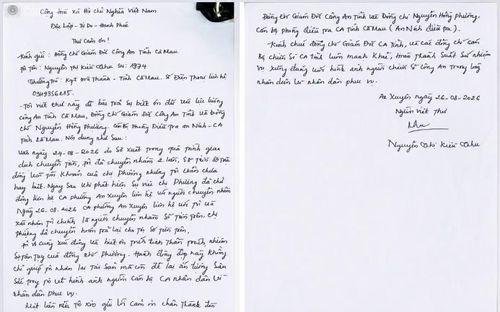 Cộng hoà xã hội chủ Nghĩa Việt Nam
Độc lập - Tự Do - Hạnh Phúc
Thư Cảm ơn!
- Kính gửi: Đồng chí Giám Đốc Công An Tỉnh Cà Mau.
Tôi tên: Nguyễn Thị Kiều Thu SN: 1974
Thường trú: - Tỉnh Cà Mau. Số Điện thoại liên hệ
- Tôi viết thư này để bày tỏ sự biết ơn đối với lực lượng
Công An Tỉnh Cà Mau, Đồng chí Giám Đốc Công An Tỉnh và Đồng
chí Nguyễn Hồng Phương. Cán bộ Phòng điều tra An Ninh - CA
Tỉnh Cà Mau. Nội dung như sau:
Vào ngày 24-08-2026 do sơ xuất trong quá trình giao
dịch chuyển tiền, tôi đã chuyển nhầm 2 lần, số tiền
đồng vào tài khoản của chị Phương nhưng tôi chưa
hay biết. Ngay sau khi phát hiện sự việc chị Phương đã chủ
động liên hệ CA phường An Xuyên liên hệ với người chuyển nhầm
Ngày 26.08.2026 CA phường An Xuyên liên hệ với tôi và
xác nhận tôi chính là người chuyển nhầm số tiền trên. Chị
Phương đã chuyển hoàn trả lại cho tôi số tiền trên.
Tôi vô cùng xúc động và biết ơn trước tinh thần trách nhiệm
của đồng chí Phương. Hành động đẹp này không
chỉ giúp tôi nhận lại tài sản mà còn để lại ấn tượng sâu
sắc trong tôi về hình ảnh người cán bộ CA nhân dân vì
nhân dân phục vụ.
Một lần nữa tôi xin gửi lời cảm ơn chân thành đến
Đồng chí Giám Đốc Công An Tỉnh và Đồng chí Nguyễn Hồng Phương.
Cán bộ phòng điều tra CA Tỉnh Cà Mau (An Ninh điều tra).
- Kính chúc đồng chí Giám Đốc CA Tỉnh, và các đồng chí cán
bộ chiến sĩ CA Tỉnh luôn mạnh khoẻ, hoàn thành xuất sắc nhiệm
vụ xứng đáng với hình ảnh người chiến sĩ Công An trong lòng
nhân dân vì nhân dân phục vụ.
An Xuyên ngày 26-08-2026
Người viết thư
Thu
Nguyễn Thị Kiều Thu